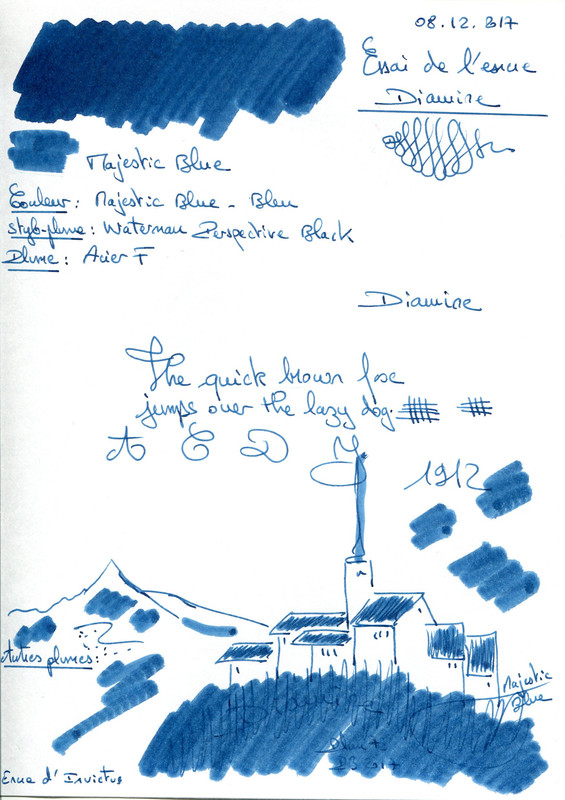 08.12.2017
Essai de l'encre
Diamine
Majestic Blue
Couleur : Majestic Blue - Bleu
Stylo-plume : Waterman Perspective Black
Plume : Acier F
Diamine
The quick brown fox
jumps over the lazy dog.
A E D Y
1912
Autres plumes :
Majestic
Blue
Diamine
2017
Encre d'Invictus